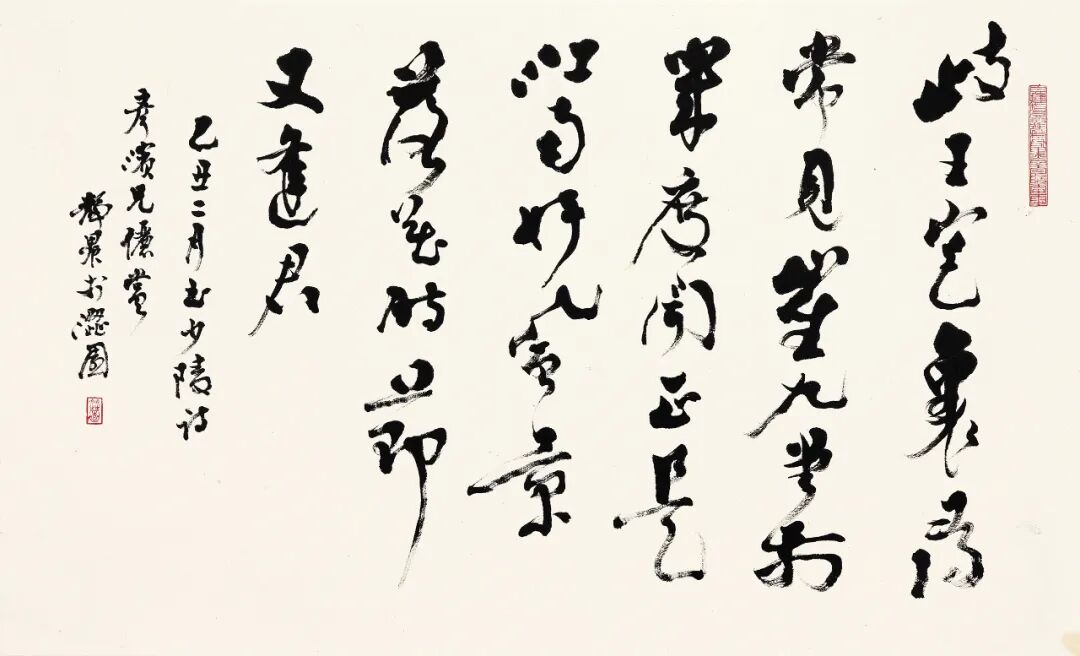 岐王宅裏尋
常見崔九堂前
幾度聞正是
江南好風景
落花時節
又逢君
乙丑二月書少陵詩
彦濱兄賞
於澀園